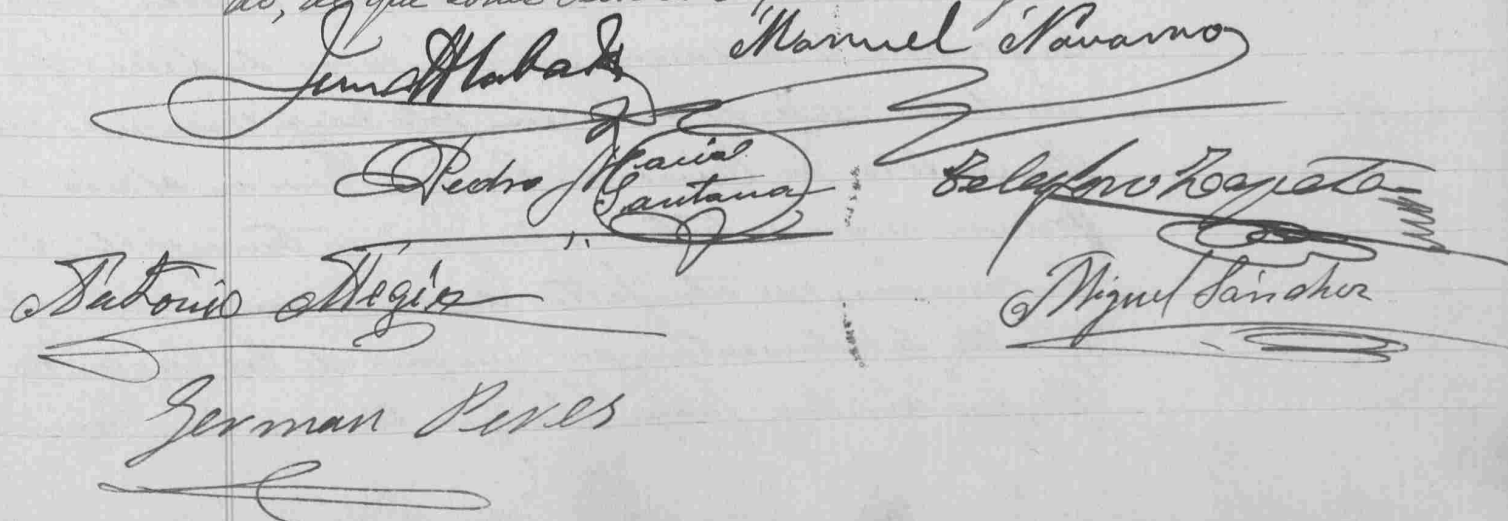 no, de que como
Manuel Navarro
Pedro Macia
Santana
Telesforo Zapata
Antonio Megia
Miguel Sánchez
German Peres